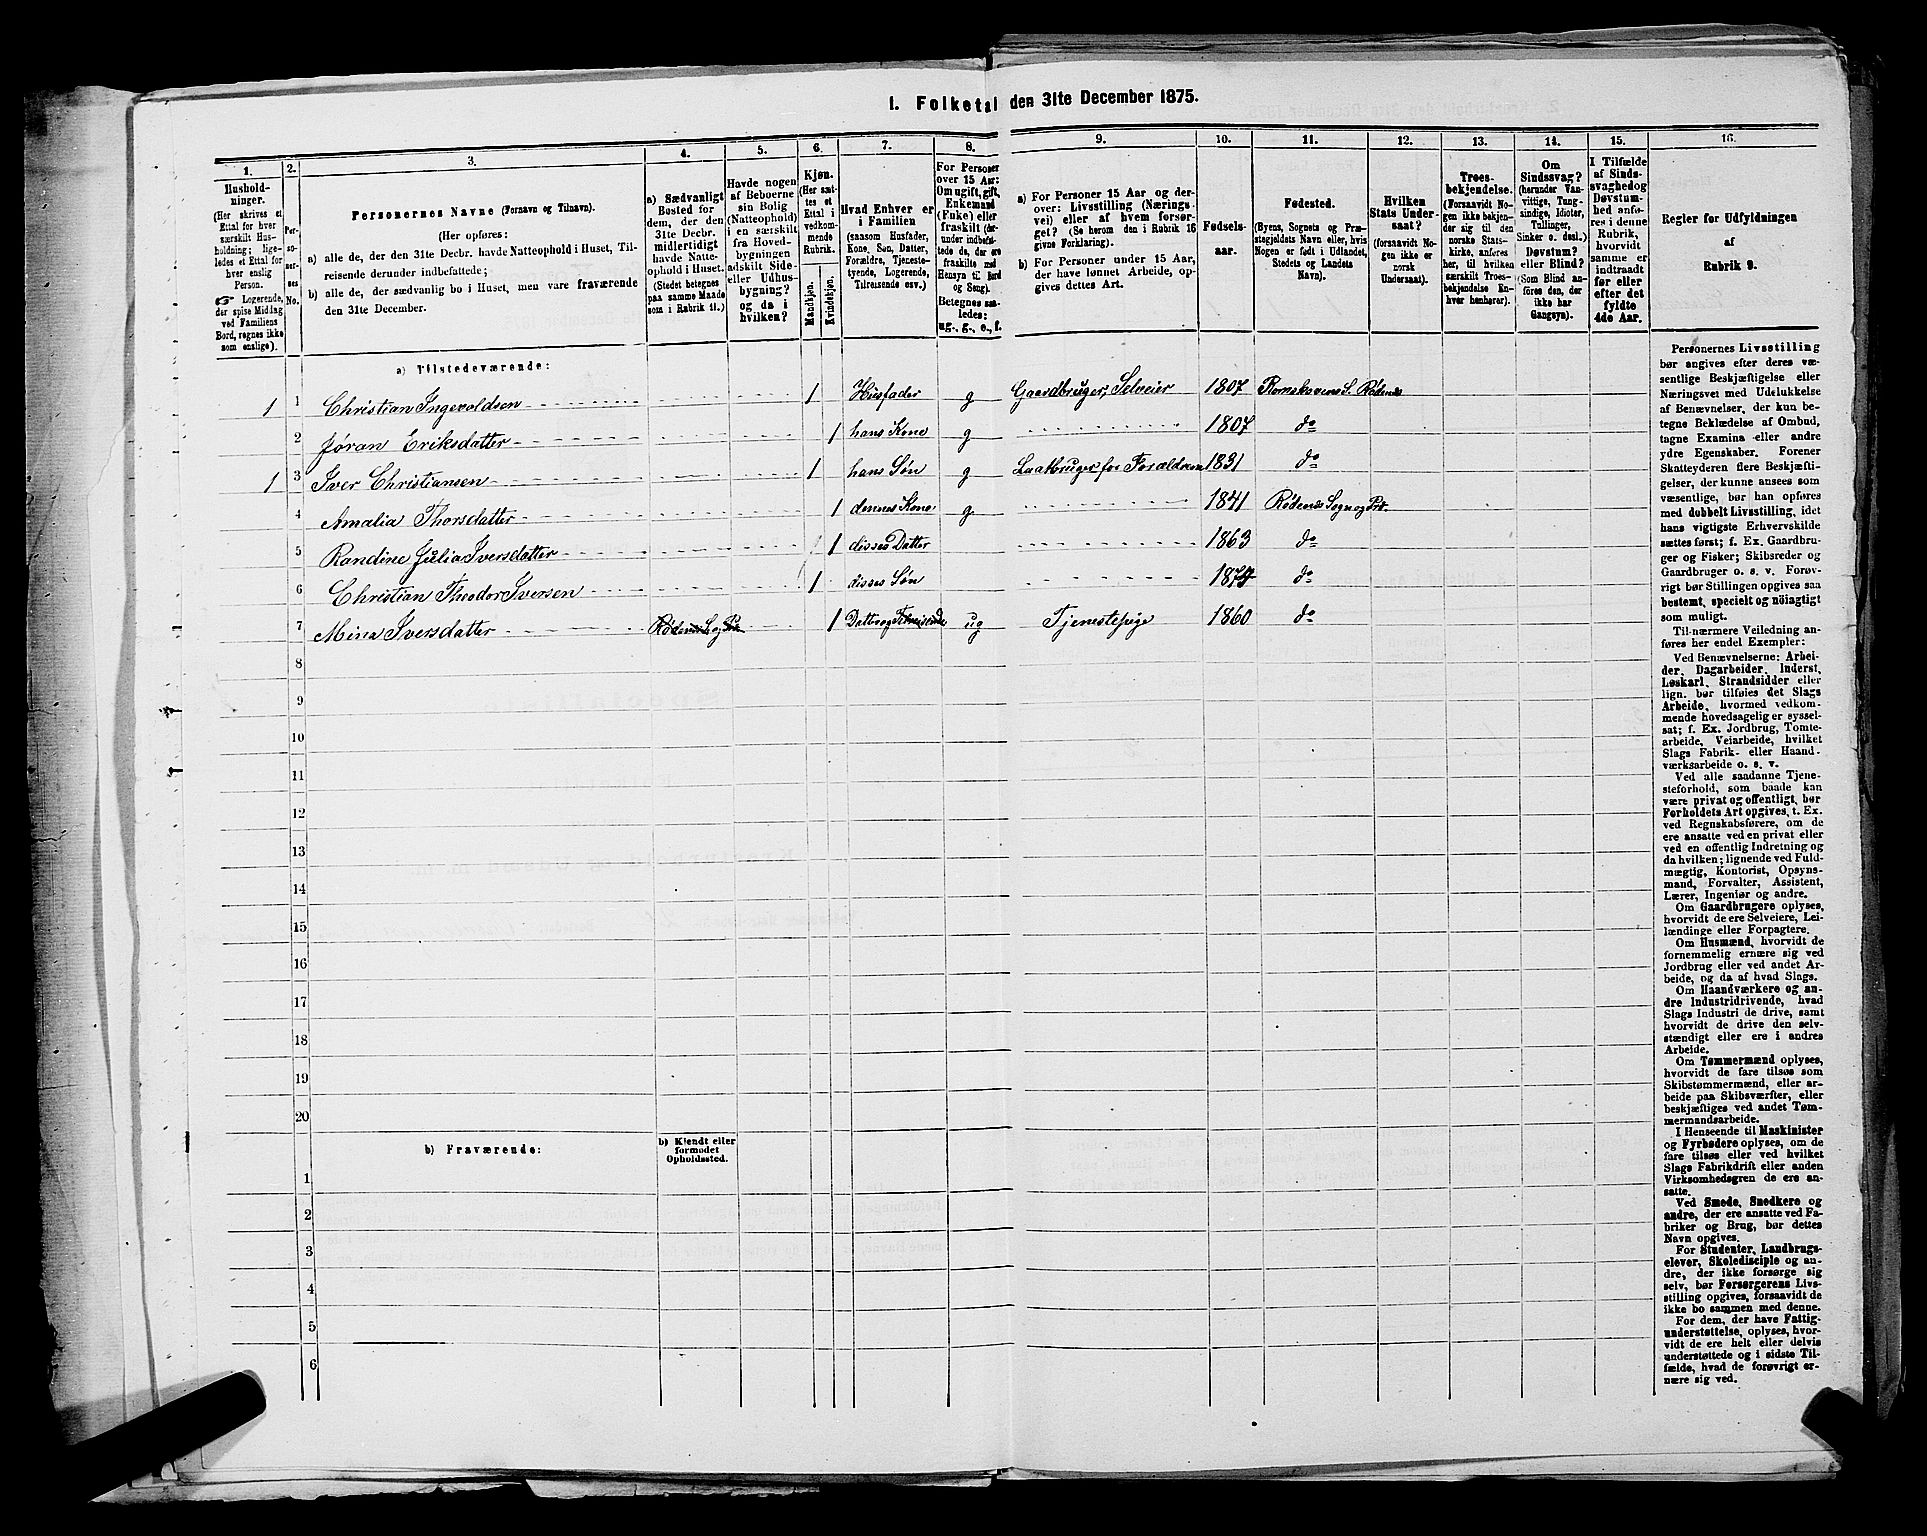 1. Folketal den 31te December 1875.
1.
Hushold-
ninger.
(Her skrives et
Ettal for hver
særskilt Hus-
holdning; lige-
ledes et Ettal for
hver enslig
Person.
☞ Logerende,
der spise Middag
ved Familiens
Bord, regnes ikke
som enslige).
2.
Per-
so-
ner-
nes
No.
3.
Personernes Navne (Fornavn og Tilnavn).
(Her opføres:
a) alle de, der den 31te Decbr. havde Natteophold i Huset, Til-
reisende derunder indbefattede;
b) alle de, der sædvanlig bo i Huset, men vare fraværende
den 31te December.
4.
a) Sædvanligt
Bosted for
dem, der den
31te Decbr.
midlertidigt
havde Natte-
ophold i Huset.
(Stedet betegnes
paa samme Maade
som i Rubrik 11.)
5.
Havde nogen
af Beboerne
sin Bolig
(Natteophold)
i en særskilt
fra Hoved-
bygningen
adskilt Side-
eller Udhus-
bygning?
og da i
hvilken?
6.
Kjøn.
(Her sæt-
tes et
Ettal i
vedkom-
mende
Rubrik.
Mandkjøn.
Kvindekjøn.
7.
Hvad Enhver er
i Familien
(saasom Husfader,
Kone, Søn, Datter,
Forældre, Tjeneste-
tyende, Logerende,
Tilreisende osv.)
8.
For Personer
over 15 Aar:
Om ugift, gift,
Enkemand
(Enke) eller
fraskilt (der-
under indbefat-
tede de, der ere
fraskilte med
Hensyn til Bord
og Seng).
Betegnes saa-
ledes:
ug., g., e., f.
9.
a) For Personer 15 Aar og der-
over: Livsstilling (Nærings-
vei) eller af hvem forsør-
get? (Se herom den i Rubrik 16
givne Forklaring).
b) For Personer under 15 Aar,
der have lønnet Arbeide, op-
gives dettes Art.
10.
Fødsels-
aar.
11.
Fødested.
(Byens, Sognets og Præ-
stegjeldets Navn eller, hvis
Nogen er født i Udlandet,
Stedets og Landets
Navn).
12.
Hvilken
Stats Under-
saat?
(forsaavidt No-
gen ikke er
norsk
Undersaat).
13.
Troes-
bekjendelse.
(Forsaavidt No-
gen ikke bekjen-
der sig til den
norske Stats-
kirke, anføres
her, til hvilken
særskilt Troes-
bekjendelse En-
hver henhører).
14.
Om
Sindssvag?
(herunder Van-
vittige, Tung-
sindige, Idioter,
Tullinger,
Sinker o. desl.)
Døvstum?
eller Blind?
(Som Blind an-
føres den, der
ikke har
Gangsyn).
15.
I Tilfælde
af Sinds-
svaghed og
Døvstum-
hed anfø-
res i denne
Rubrik,
hvorvidt
samme er
indtraadt
før eller
efter det
fyldte
4de Aar.
16.
Regler for Udfyldningen
af
Rubrik 9.
a) Tilstedeværende:
1 1 Christian Ingevoldsen 1 Husfader g Gaardbruger, Selveier 1807 Romskovens S. Rødenes
2 Jøran Eriksdatter 1 hans Kone g 1807 do
1 3 Iver Christiansen 1 hans Søn g 1831 do
4 Amalia Thorsdatter 1 dennes Kone g 1841 Rødenes Sogn og Pr.
5 Randine Julia Iversdatter 1 disses Datter 1863 do
6 Christian Theodor Iversen 1 disses Søn 1874 do
7 Mina Iversdatter 1 ug Tjenestepige 1860 do
8
9
10
11
12
13
14
15
16
17
18
19
20
b) Fraværende:
b) Kjendt eller
formodet
Opholdssted.
1
2
3
4
5
6
Personernes Livsstilling
bør angives efter deres væ-
sentlige Beskjæftigelse eller
Næringsvei med Udelukkelse
af Benævnelser, der kun be-
tegne Beklædelse af Ombud,
tagne Examina eller andre
ydre Egenskaber. Forener
Skatteyderen flere Beskjæfti-
gelser, der kunne ansees som
væsentlige, bør han opføres
med dobbelt Livsstilling, idet
hans vigtigste Erhvervskilde
sættes først; f. Ex. Gaardbru-
ger og Fisker; Skibsreder og
Gaardbruger o. s. v. Forøv-
rigt bør Stillingen opgives saa
bestemt, specielt og nøiagtigt
som muligt.
Til nærmere Veiledning an-
føres her endel Exempler:
Ved Benævnelserne: Arbei-
der, Dagarbeider, Inderst,
Løskarl, Strandsidder eller
lign. bør tilføies det Slags
Arbeide, hvormed vedkom-
mende hovedsagelig er syssel-
sat; f. Ex. Jordbrug, Tomte-
arbeide, Veiarbeide, hvilket
Slags Fabrik- eller Haand-
værksarbeide o. s. v.
Ved alle saadanne Tjene-
steforhold, som baade kan
være privat og offentligt, bør
Forholdets Art opgives, t. Ex.
ved Regnskabsførere, om de
ere ansatte ved en privat eller
ved en offentlig Indretning og
da hvilken; lignende ved Fuld-
mægtig, Kontorist, Opsyns-
mand, Forvalter, Assistent,
Lærer, Ingeniør og andre.
Om Gaardbrugere oplyses,
hvorvidt de ere Selveiere, Lei-
lændinge eller Forpagtere.
Om Husmænd, hvorvidt de
fornemmelig ernære sig ved
Jordbrug eller ved andet Ar-
beide, og da af hvad Slags.
Om Haandværkere og an-
dre Industridrivende, hvad
Slags Industri de drive, samt
hvorvidt de drive den selv-
stændigt eller ere i andres
Arbeide.
Om Tømmermænd oplyses,
hvorvidt de fare tilsøs som
Skibstømmermænd, eller ar-
beide paa Skibsværfter, eller
beskjæftiges ved andet Tøm-
mermandsarbeide.
I Henseende til Maskinister
og Fyrbødere oplyses, om de
fare tilsøs eller ved hvilket
Slags Fabrikdrift eller anden
Virksomhedsgren de ere an-
satte.
Ved Smede, Snedkere og
andre, der ere ansatte ved Fa-
briker og Brug, bør dettes
Navn opgives.
For Studenter, Landbrugs-
elever, Skoledisciple og an-
dre, der ikke forsørge sig
selv, bør Forsørgerens Livs-
stilling opgives, forsaavidt de
ikke bo sammen med denne.
For dem, der have Fattig-
understøttelse, oplyses, hvor-
vidt de ere helt eller delvis
understøttede og i sidste Til-
fælde, hvad de forøvrigt er-
nære sig ved.